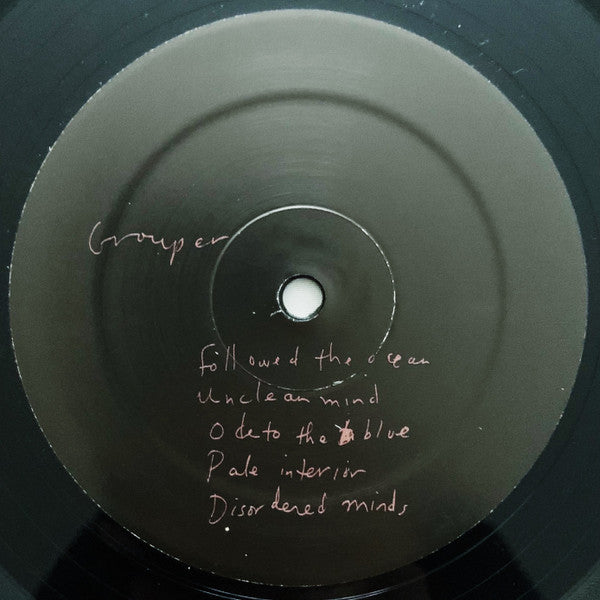 Grouper
followed the ocean
Unclean mind
Ode to the blue
Pale interior
Disordered minds